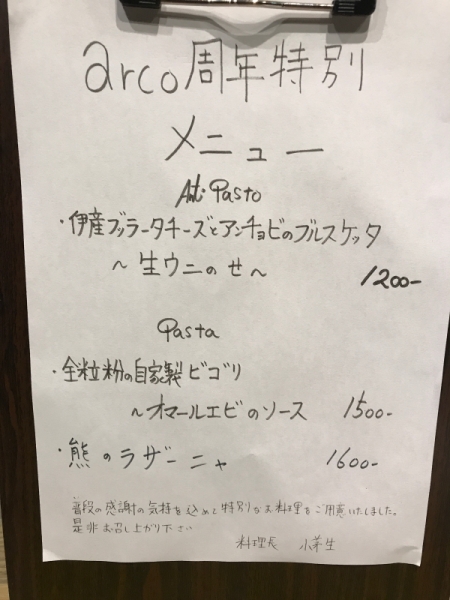 arco周年特別
メニュー
Anti・Pasto
・伊産ブッラータチーズとアンチョビのブルスケッタ
〜生ウニのせ〜 1200-
Pasta
・全粒粉の自家製ビゴリ
〜オマールエビのソース 1500-
・熊のラザーニャ 1600-
普段の感謝の気持を込めて特別なお料理をご用意いたしました。
是非お召し上がり下さい
料理長